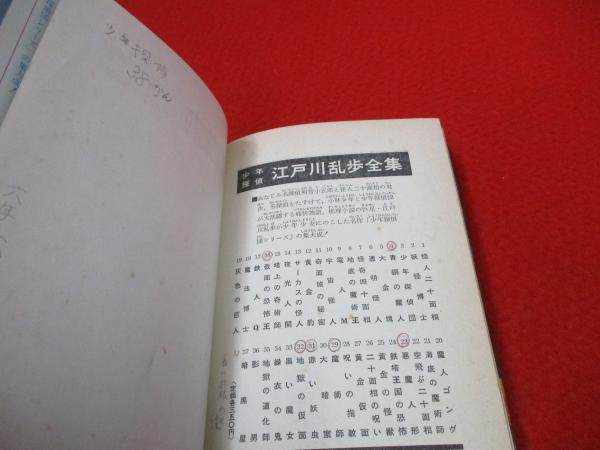 少年探偵
38かん
少年
探偵
江戸川乱歩全集
■おなじみ名探偵明智小五郎と怪人二十面相の対
決。名探偵をたすけて、小林少年と少年探偵団
が大活躍する痛快物語。推理小説の巨星・江戸
川乱歩が少年少女にのこした名作「少年探偵
団シリーズ」の集大成！
1 怪人二十面相
2 妖怪博士
3 少年探偵団
4 青銅の魔人
5 大金塊
6 透明怪人
7 怪奇四十面相
8 地底の魔術王
9 電人M
10 宇宙怪人
11 奇面城の秘密
12 黄金豹
13 サーカスの怪人
14 夜光人間
15 塔上の奇術師
16 仮面の恐怖王
17 鉄人Q
18 魔法博士
19 灰色の巨人
20 魔人ゴング
21 海底の魔術師
22 空飛ぶ二十面相
23 悪魔人形
24 鉄塔王国の恐怖
25 黄金の怪獣
26 二十面相の呪い
27 黄金仮面
28 呪いの指紋
29 魔術師
30 大暗室
31 赤い妖虫
32 地獄の仮面
33 黒い魔女
34 緑衣の鬼
35 地獄の道化師
36 影男
37 暗黒星
〈定価各三五〇円〉